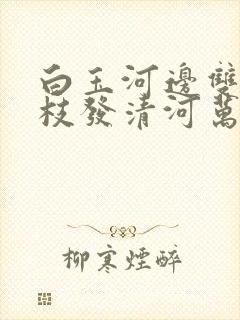 白玉河邊雙
枝發清河萬
柳寒煙醉